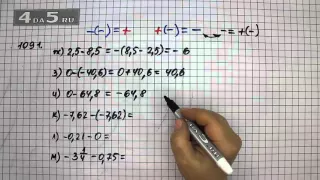 4 ДА 5 .RU
-(-) = + +(-) = - _ _ -= +(-)
1091.
ж) 2,5-8,5 = -(8,5-2,5)= -6
з) 0-(-40,6)= 0+40,6 = 40,6
и) 0-64,8 = -64,8
к) -7,62-(-7,62)=
л) -0,21-0=
м) -3 1/4 -0,75=